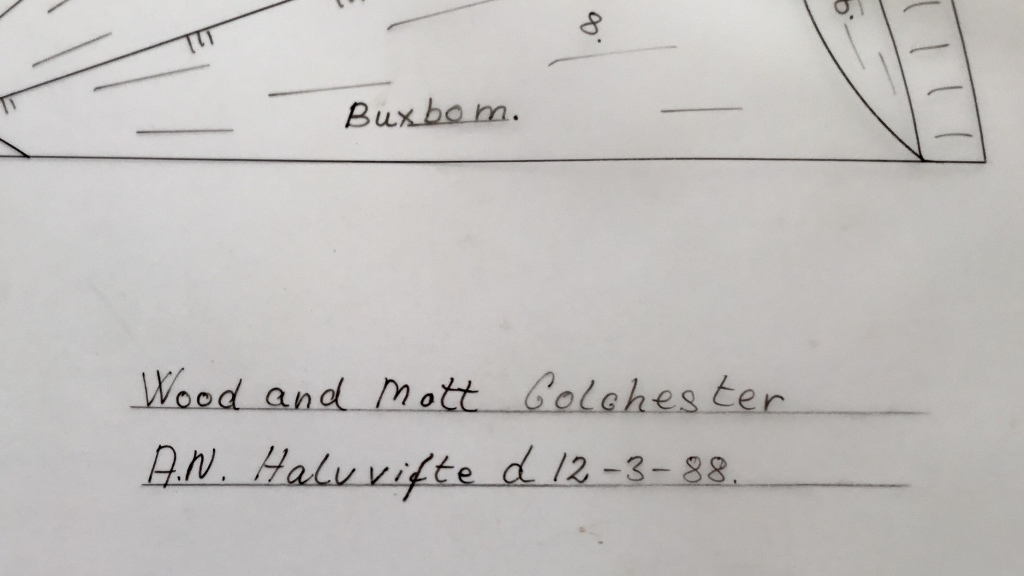 8.
6.
Buxbom.
Wood and Mott Colchester
A.N. Haluvifte d 12-3-88.